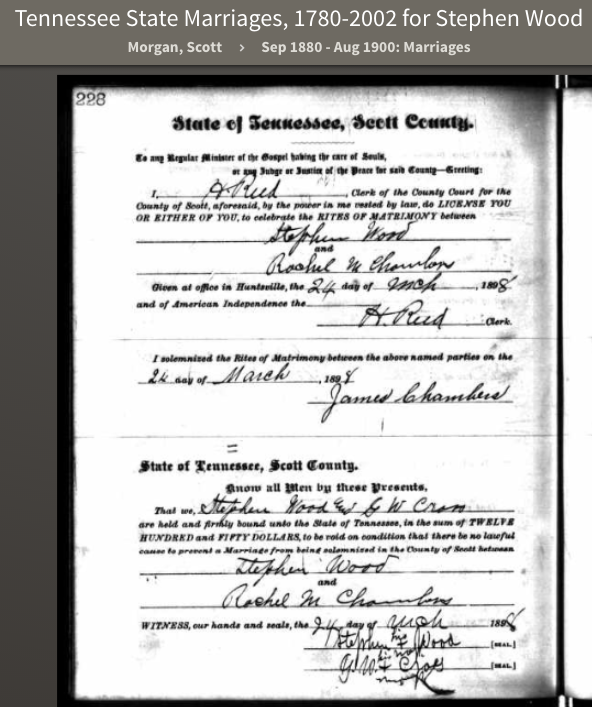 Tennessee State Marriages, 1780-2002 for Stephen Wood
Morgan, Scott > Sep 1880 - Aug 1900: Marriages
228
State of Tennessee, Scott County.
To any Regular Minister of the Gospel having the care of Souls,
or any Judge or Justice of the Peace for said County—Greeting:
I, H Reed, Clerk of the County Court for the
County of Scott, aforesaid, by the power in me vested by law, do LICENSE YOU
OR EITHER OF YOU, to celebrate the RITES OF MATRIMONY between
Stephen Wood
and
Rachel M Chambers
Given at office in Huntsville, the 24 day of Mch, 1898
and of American Independence the
H. Reed Clerk.
I solemnized the Rites of Matrimony between the above named parties on the
24 day of March, 1898
James Chambers
State of Tennessee, Scott County.
Know all Men by these Presents,
That we, Stephen Wood & G W Cross
are held and firmly bound unto the State of Tennessee, in the sum of TWELVE
HUNDRED and FIFTY DOLLARS, to be void on condition that there be no lawful
cause to prevent a Marriage from being solemnized in the County of Scott between
Stephen Wood
and
Rachel M Chambers
WITNESS, our hands and seals, the 24 day of Mch 1898
Stephen his Wood [SEAL.]
G. W. Cross [SEAL.]